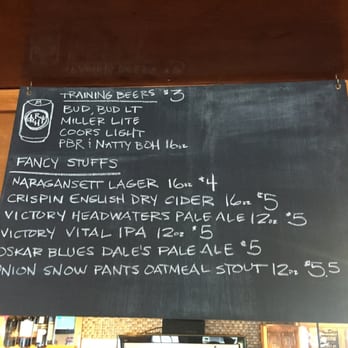 TRAINING BEERS $3
BUD, BUD LT
MILLER LITE
COORS LIGHT
PBR & NATTY BOH 16oz
FANCY STUFFS
NARAGANSETT LAGER 16oz $4
CRISPIN ENGLISH DRY CIDER 16oz $5
VICTORY HEADWATERS PALE ALE 12oz $5
VICTORY VITAL IPA 12oz $5
OSKAR BLUES DALE'S PALE ALE $5
UNION SNOW PANTS OATMEAL STOUT 12oz $5.5